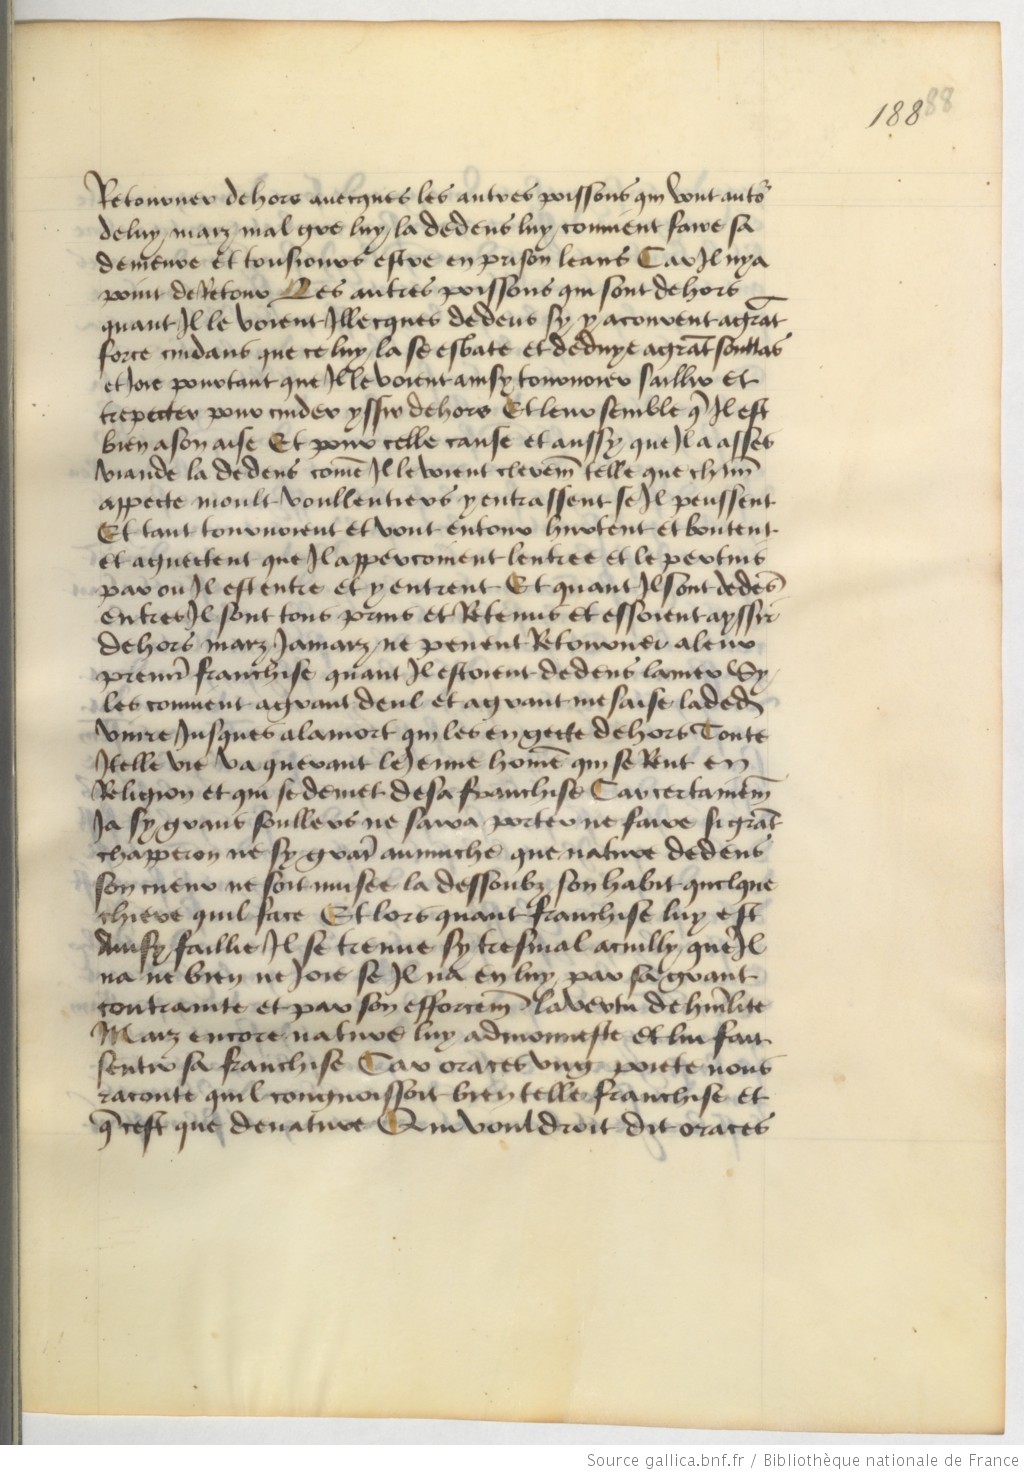 188 88
Retourner dehors auecques les autres poissons qui vont auto'
de luy / marz mal gre luy / la dedens luy conuient faire sa
demeure et tousiours estre en prison leans Car Il ny a
point de Retour Les autres poissons qui sont dehors
quant Il le voient Illecques dedens sy y acourent a grāt
force cuidans que celuy la se esbate et deduye a grāt soullas
et Joie pourtant que Il le voient ainsy tournoier saillir et
trepecter pour cuider yssir dehors Et leur semble q̄ Il est
bien a son aise Et pour celle cause et aussy que Il a asses
viande la dedens com̄e Il le voient clerem̄ telle que ch'un̄
appecte moult voullentiers y entrassent se Il peussent
Et tant tournoient et vont entour hurtent et boutent
et aguectent que Il apparcoiuent lentree et le pertuis
par ou Il est entre et y entrent Et quant Il sont dedēs
entres Il sont tous prins et Retenus et essoient a yssir
dehors marz Jamarz ne peuent Retourner a leur
premi' franchise quant Il estoient dedens la mer Sy
les conuient a grant deul et a grant mesaise la ded'
viure Jusques a la mort qui les en gecte dehors Toute
Itelle vie va querant le Jeune hom̄e qui se Rent en
Religion et qui se demet de sa franchise Car certainem̄
Ja sy grans soullers ne saira porter ne faire si grāt
chapperon ne sy grāt aumuche que nature dedens
son cueur ne soit musee la dessoubz son habit quelque
chiere quil face Et lors quant franchise luy est
Ainsy faillie Il se treuue sy tresmal acuilly que Il
na ne bien ne Joie se Il na en luy par sa grant
contrainte et par son efforcem̄ la vertu de hu'lite
Marz encore nature luy admonneste et lui fait
sentir sa franchise Car oraces vng poete nous
raconte quil congnoissoit bien telle franchise et
q̄ cest que de nature Qui vouldroit dit oraces
Source gallica.bnf.fr / Bibliothèque nationale de France